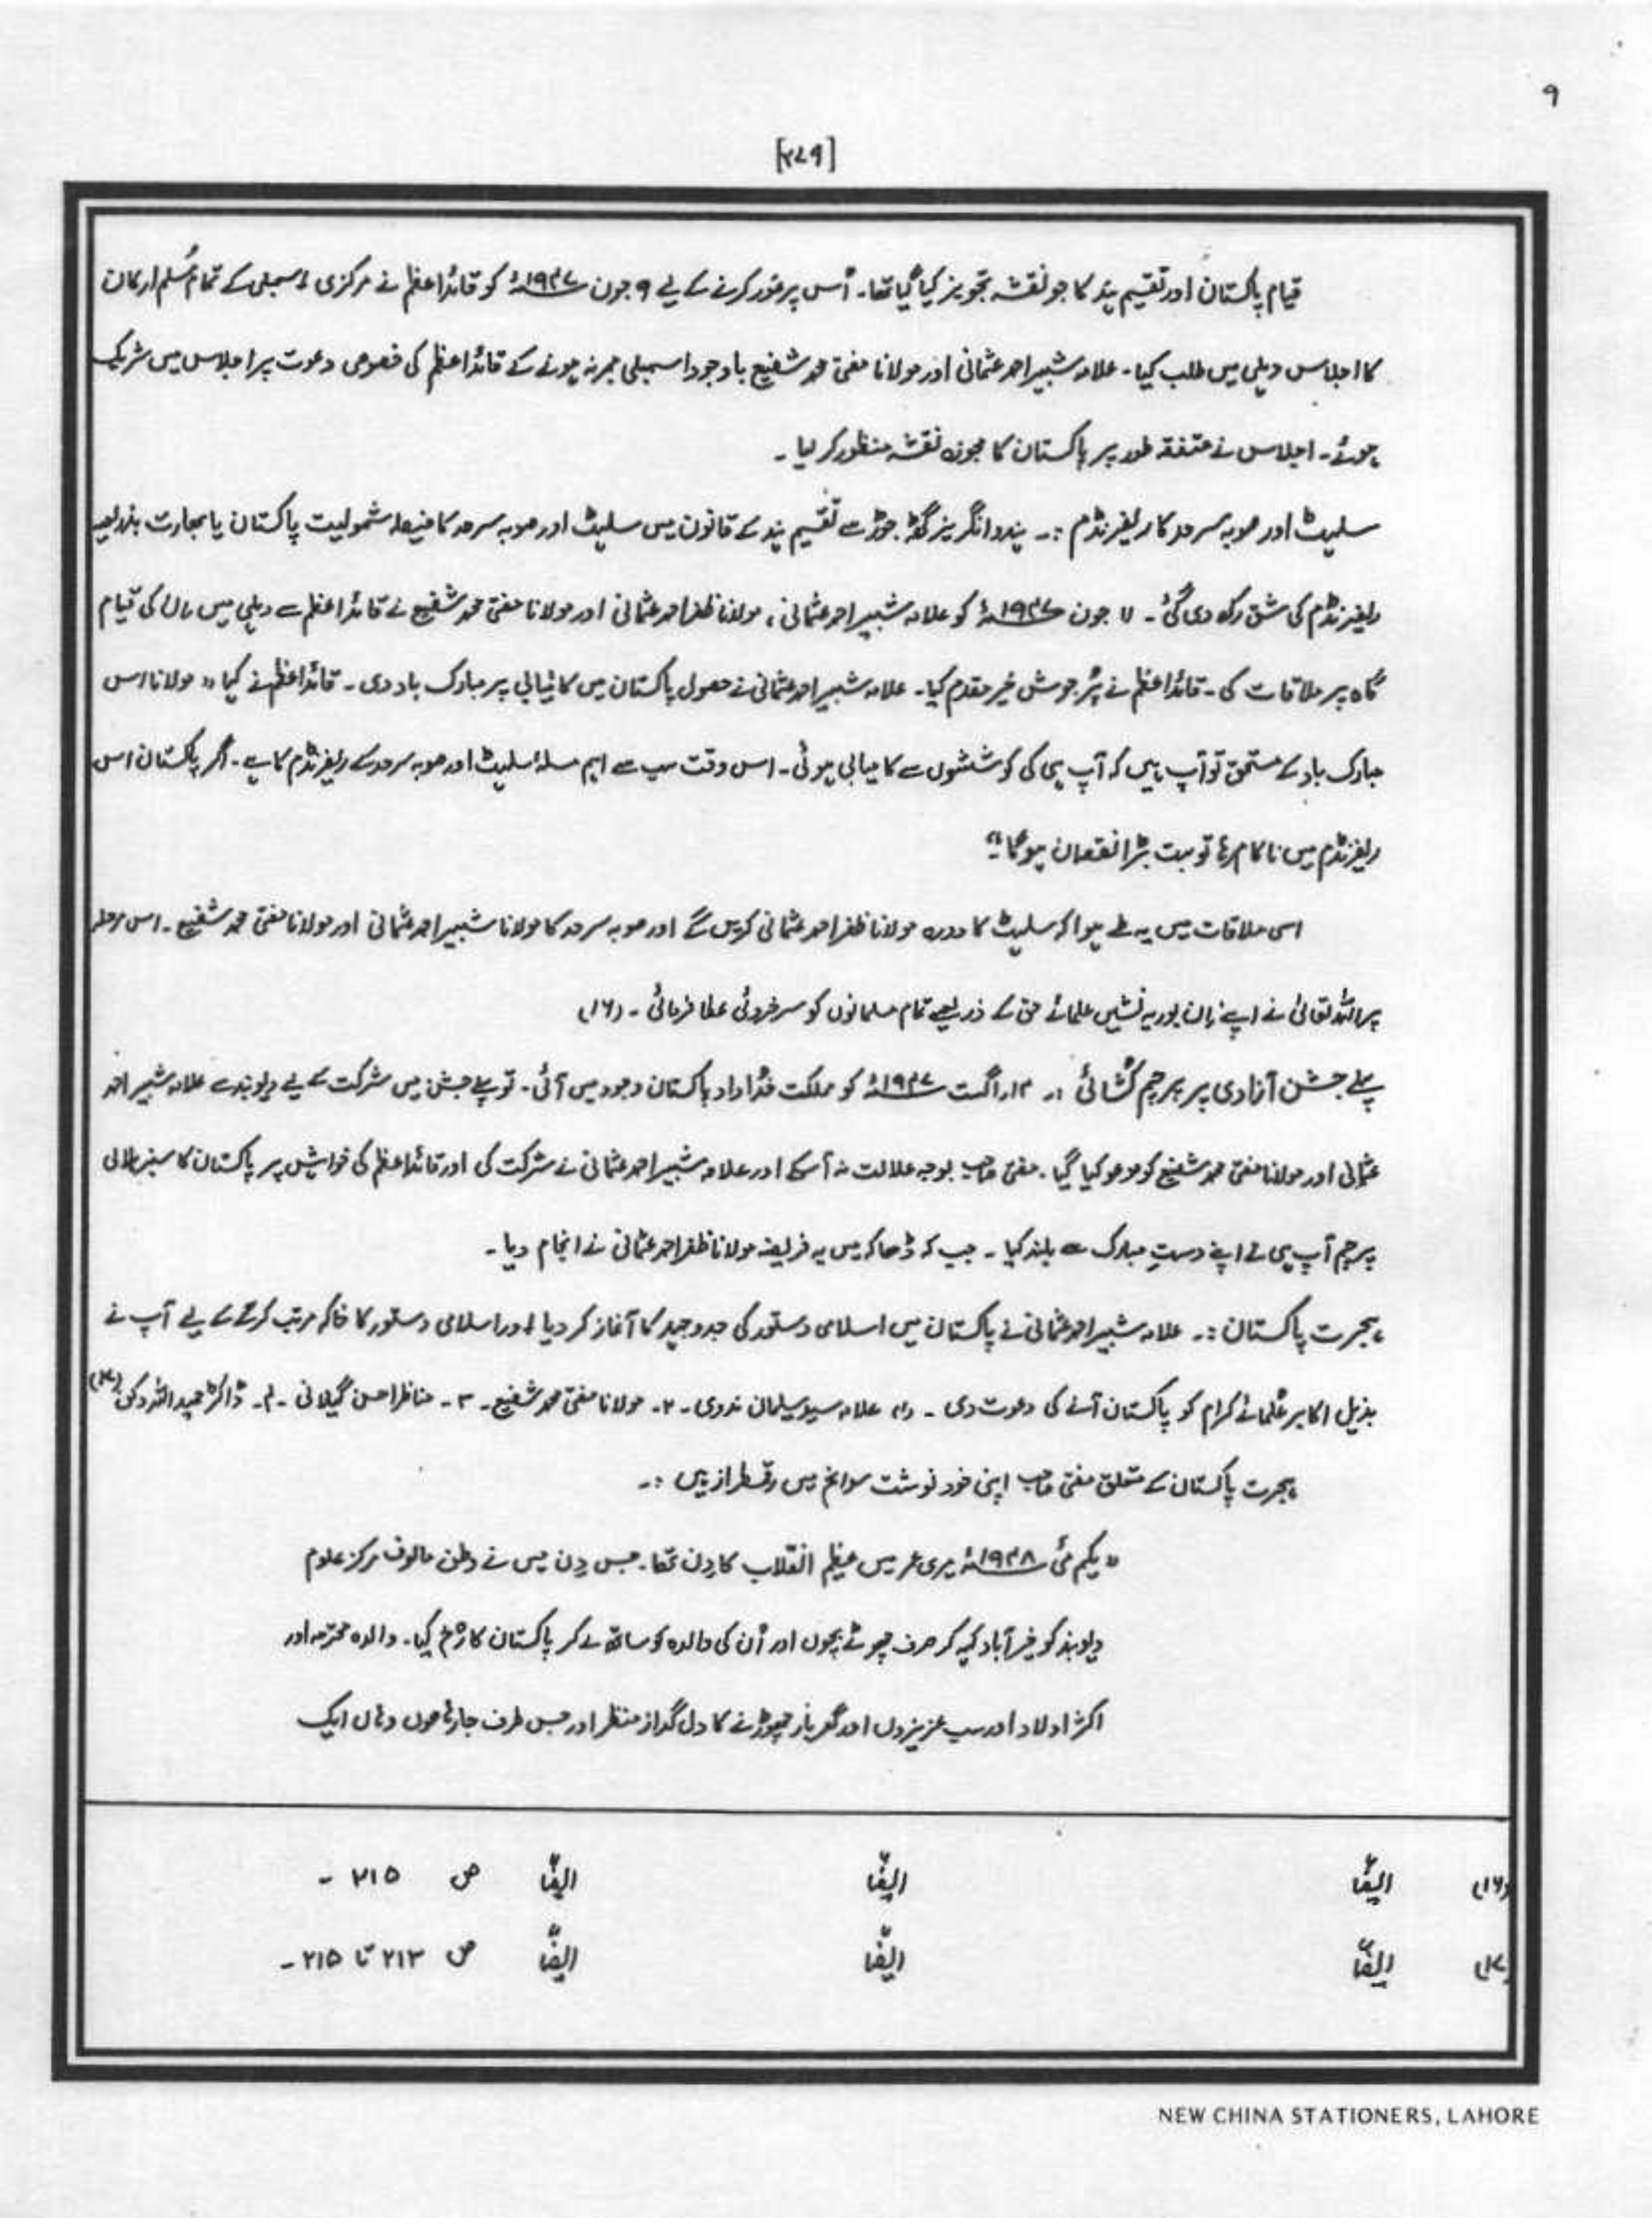 ۹
[۲۷۹]
قیام پاکستان اور تقسیم ہند کا جو نقشہ تجویز کیا گیا تھا۔ اُس پر غور کرنے کے لیے ۹ جون ۱۹۴۷ء کو قائداعظم نے مرکزی اسمبلی کے تمام مُسلم ارکان
کا اجلاس دہلی میں طلب کیا۔ علامہ شبیر احمد عثمانی اور مولانا مفتی محمد شفیع باوجود اسمبلی ممبر نہ ہونے کے قائداعظم کی خصوصی دعوت پر اجلاس میں شریک
ہوئے۔ اجلاس نے متفقہ طور پر پاکستان کا مجوزہ نقشہ منظور کر لیا۔
سلہٹ اور صوبہ سرحد کا ریفرنڈم :۔ ہندو انگریز گٹھ جوڑ سے تقسیم ہند کے قانون میں سلہٹ اور صوبہ سرحد کا فیصلہ شمولیت پاکستان یا بھارت بذریعہ
ریفرنڈم کی شق رکھ دی گئی۔ ۱۱ جون ۱۹۴۷ء کو علامہ شبیر احمد عثمانی، مولانا ظفر احمد عثمانی اور مولانا مفتی محمد شفیع نے قائداعظم سے دہلی میں ان کی قیام
گاہ پر ملاقات کی۔ قائداعظم نے پُر جوش خیر مقدم کیا۔ علامہ شبیر احمد عثمانی نے حصول پاکستان میں کامیابی پر مبارک باد دی۔ قائداعظم نے کہا " مولانا اس
مبارک باد کے مستحق تو آپ ہیں کہ آپ ہی کی کوششوں سے کامیابی ہوئی۔ اس وقت سب سے اہم مسئلہ سلہٹ اور صوبہ سرحد کے ریفرنڈم کا ہے۔ اگر پاکستان اس
ریفرنڈم میں ناکام رہا تو بہت بڑا نقصان ہوگا"۔
اسی ملاقات میں یہ طے ہوا کہ سلہٹ کا دورہ مولانا ظفر احمد عثمانی کریں گے اور صوبہ سرحد کا مولانا شبیر احمد عثمانی اور مولانا مفتی محمد شفیع۔ اس مرحلہ
پر اللہ تعالیٰ نے اپنے ان بوریہ نشیں علمائے حق کے ذریعے تمام مسلمانوں کو سرخروئی عطا فرمائی۔ (۱۶)
پہلے جشن آزادی پر پرچم کُشائی :۔ ۱۴ اگست ۱۹۴۷ء کو مملکت خُداداد پاکستان وجود میں آئی۔ تو پہلے جشن میں شرکت کے لیے دیوبند سے علامہ شبیر احمد
عثمانی اور مولانا مفتی محمد شفیع کو مدعو کیا گیا۔ مفتی صاحب بوجہ علالت نہ آسکے اور علامہ شبیر احمد عثمانی نے شرکت کی اور قائداعظم کی خواہش پر پاکستان کا سبز ہلالی
پرچم آپ ہی نے اپنے دستِ مبارک سے بلند کیا۔ جب کہ ڈھاکہ میں یہ فریضہ مولانا ظفر احمد عثمانی نے انجام دیا۔
ہجرت پاکستان :۔ علامہ شبیر احمد عثمانی نے پاکستان میں اسلامی دستور کی جدوجہد کا آغاز کر دیا اور اسلامی دستور کا خاکہ مرتب کرنے کے لیے آپ نے
بذیل اکابر عُلمائے کرام کو پاکستان آنے کی دعوت دی۔ ۱۔ علامہ سید سلیمان ندوی۔ ۲۔ مولانا مفتی محمد شفیع۔ ۳۔ مناظر احسن گیلانی۔ ۴۔ ڈاکٹر حمید اللہ دکنی (۱۷)
ہجرت پاکستان کے متعلق مفتی صاحب اپنی خود نوشت سوانح میں رقمطراز ہیں :۔
" یکم مئی ۱۹۴۸ء میری عمر میں عظیم انقلاب کا دِن تھا۔ جس دِن میں نے وطن مالوف مرکز علوم
دیوبند کو خیر آباد کہہ کر صرف چھوٹے بچوں اور اُن کی والدہ کو ساتھ لے کر پاکستان کا رُخ کیا۔ والدہ محترمہ اور
اکثر اولاد اور سب عزیزوں اور گھر بار چھوڑنے کا دل گداز منظر اور جس طرف جا رہا ہوں وہاں ایک
(۱۶) ایضاً ایضاً ایضاً ص ۲۱۵ ۔
(۱۷) ایضاً ایضاً ایضاً ص ۲۱۳ تا ۲۱۵ ۔
NEW CHINA STATIONERS, LAHORE